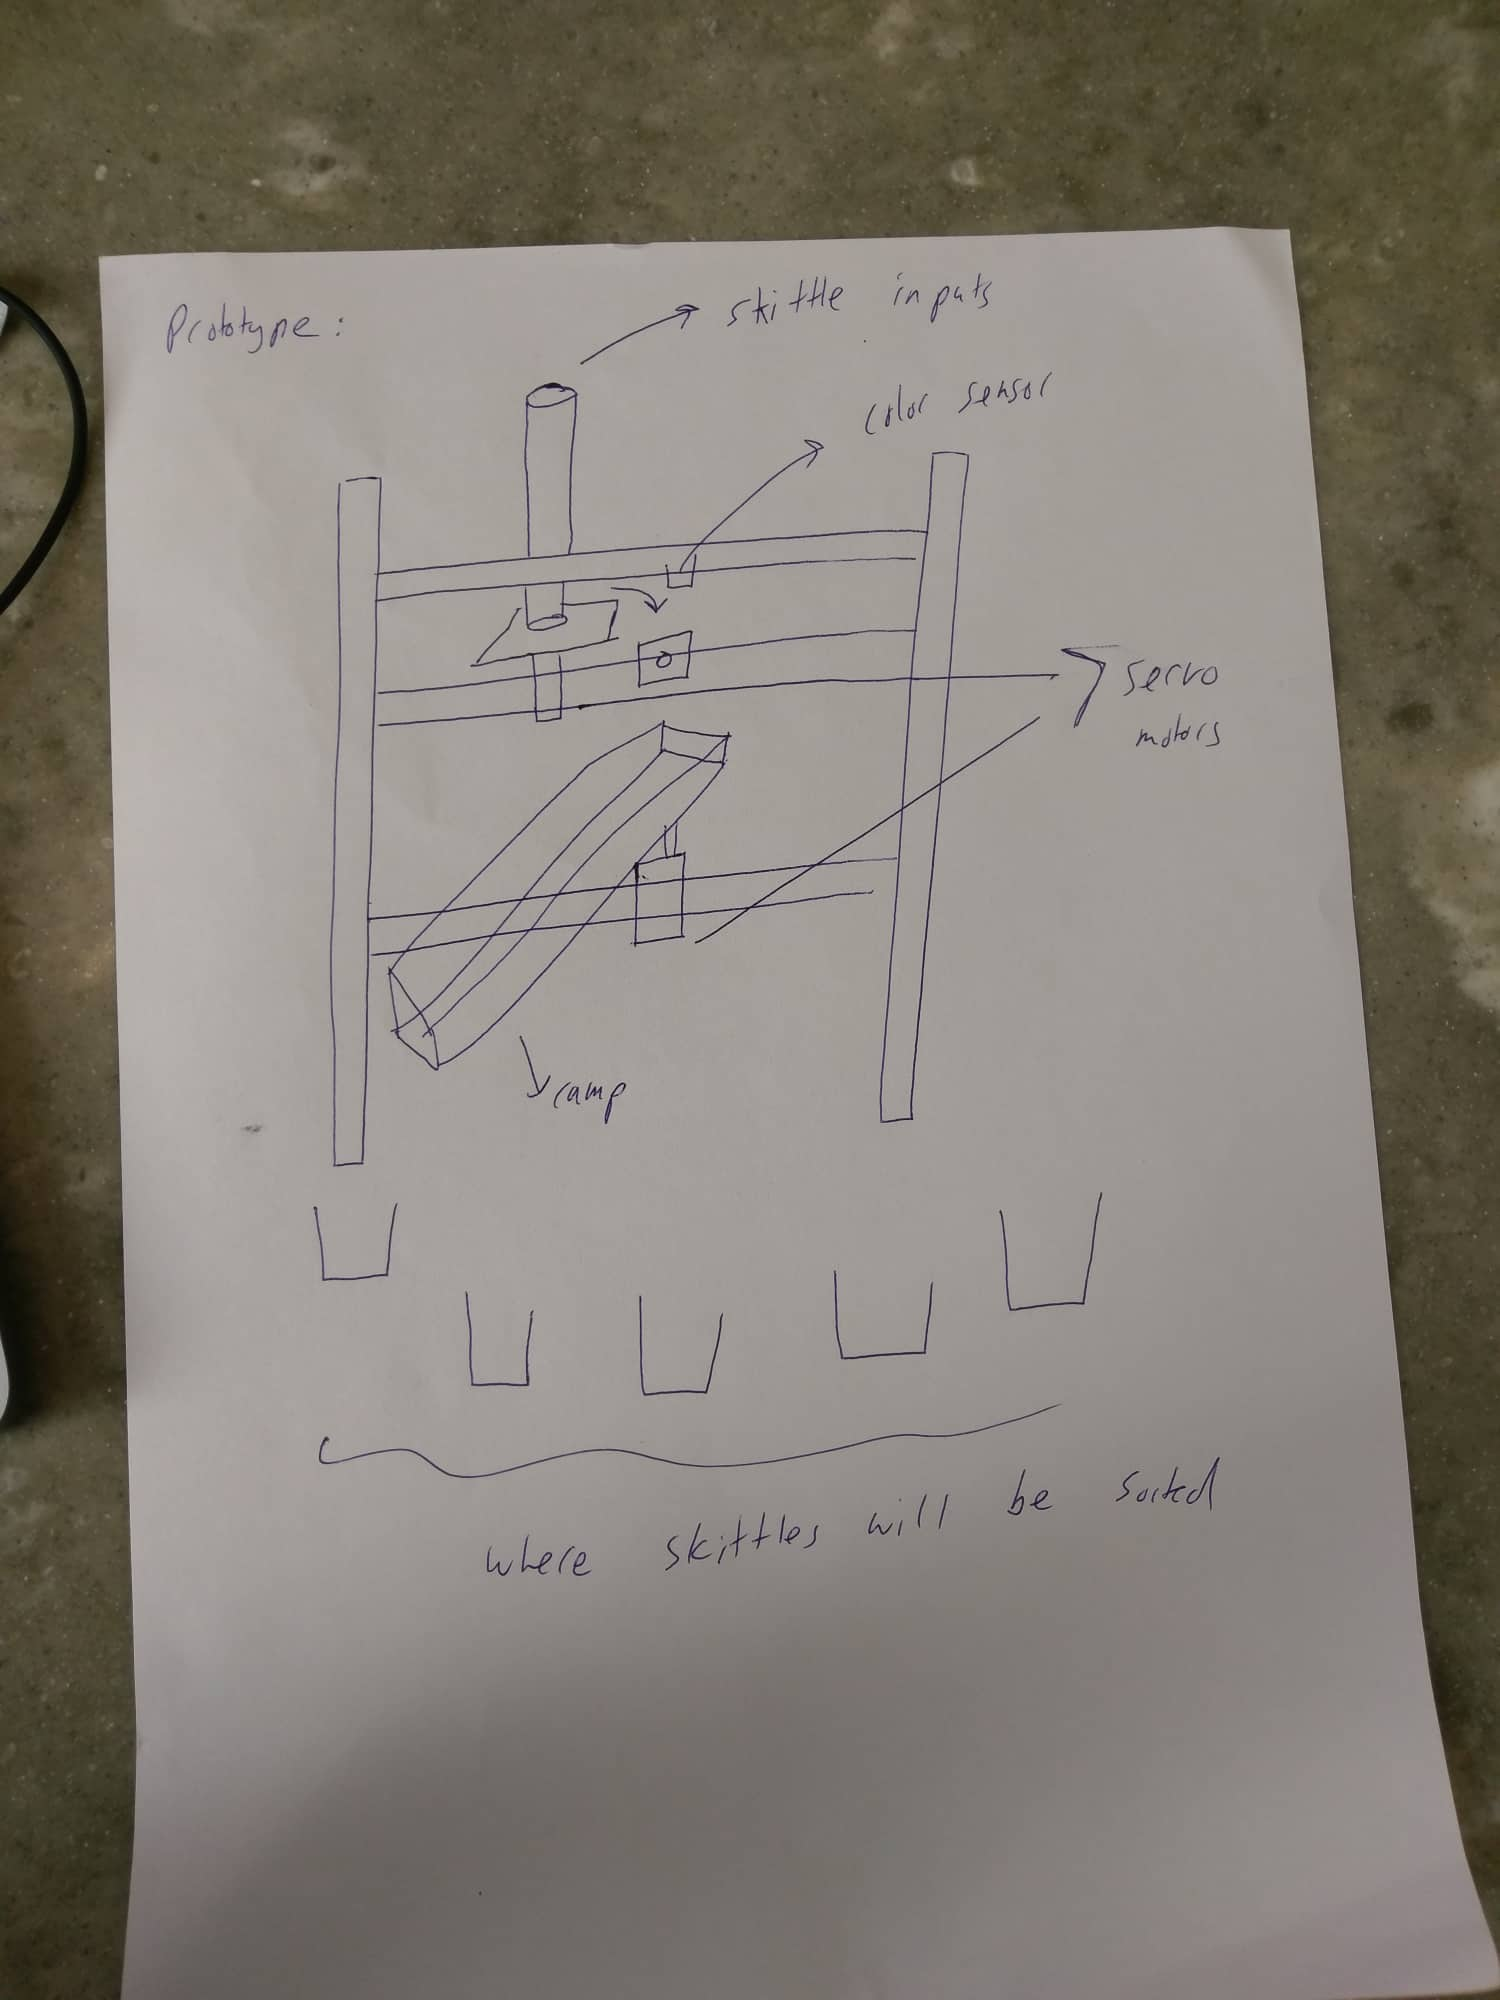 Prototype:
skittle inputs
color sensor
servo
motors
ramp
where skittles will be sorted